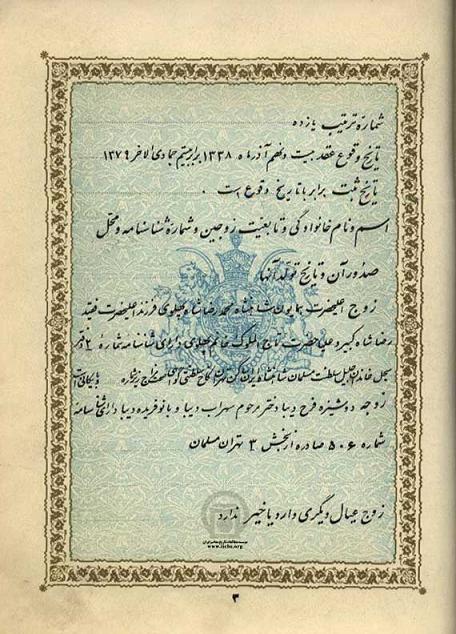 شماره ترتیب یازده
تاریخ وقوع عقد بیست و نهم آذر ماه ۱۳۳۸ برابر بیستم جمادی الاخر ۱۳۷۹
تاریخ ثبت برابر با تاریخ وقوع است .
اسم و نام خانوادگی و تابعیت زوجین و شمارهٔ شناسنامه و محل
صدور آن و تاریخ تولد آنها
زوج اعلیحضرت همایون شاهنشاه محمد رضا شاه پهلوی فرزند اعلیحضرت فقید
رضا شاه کبیر و علیاحضرت تاج الملوک خانم پهلوی دارای شناسنامه شمارهٔ ۲ دفتر
سجل خاندان جلیل سلطنت مسلمان شاهنشاه ایران ساکن تهران کاخ سلطنتی
زوجه دوشیزه فرح دیبا دختر مرحوم سهراب دیبا و بانو فریده دیبا دارای شناسنامه
شماره ۵۰۶ صادره از بخش ۳ تهران مسلمان
زوج عیال دیگری دارد یا خیر ندارد
www.iichs.org
۳